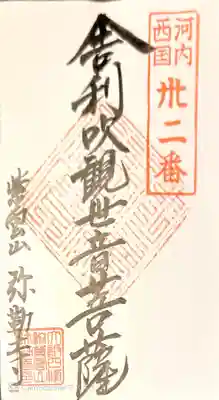 河内
西国
卅二番
舎利吹観世音菩薩
紫雲山 弥勒寺